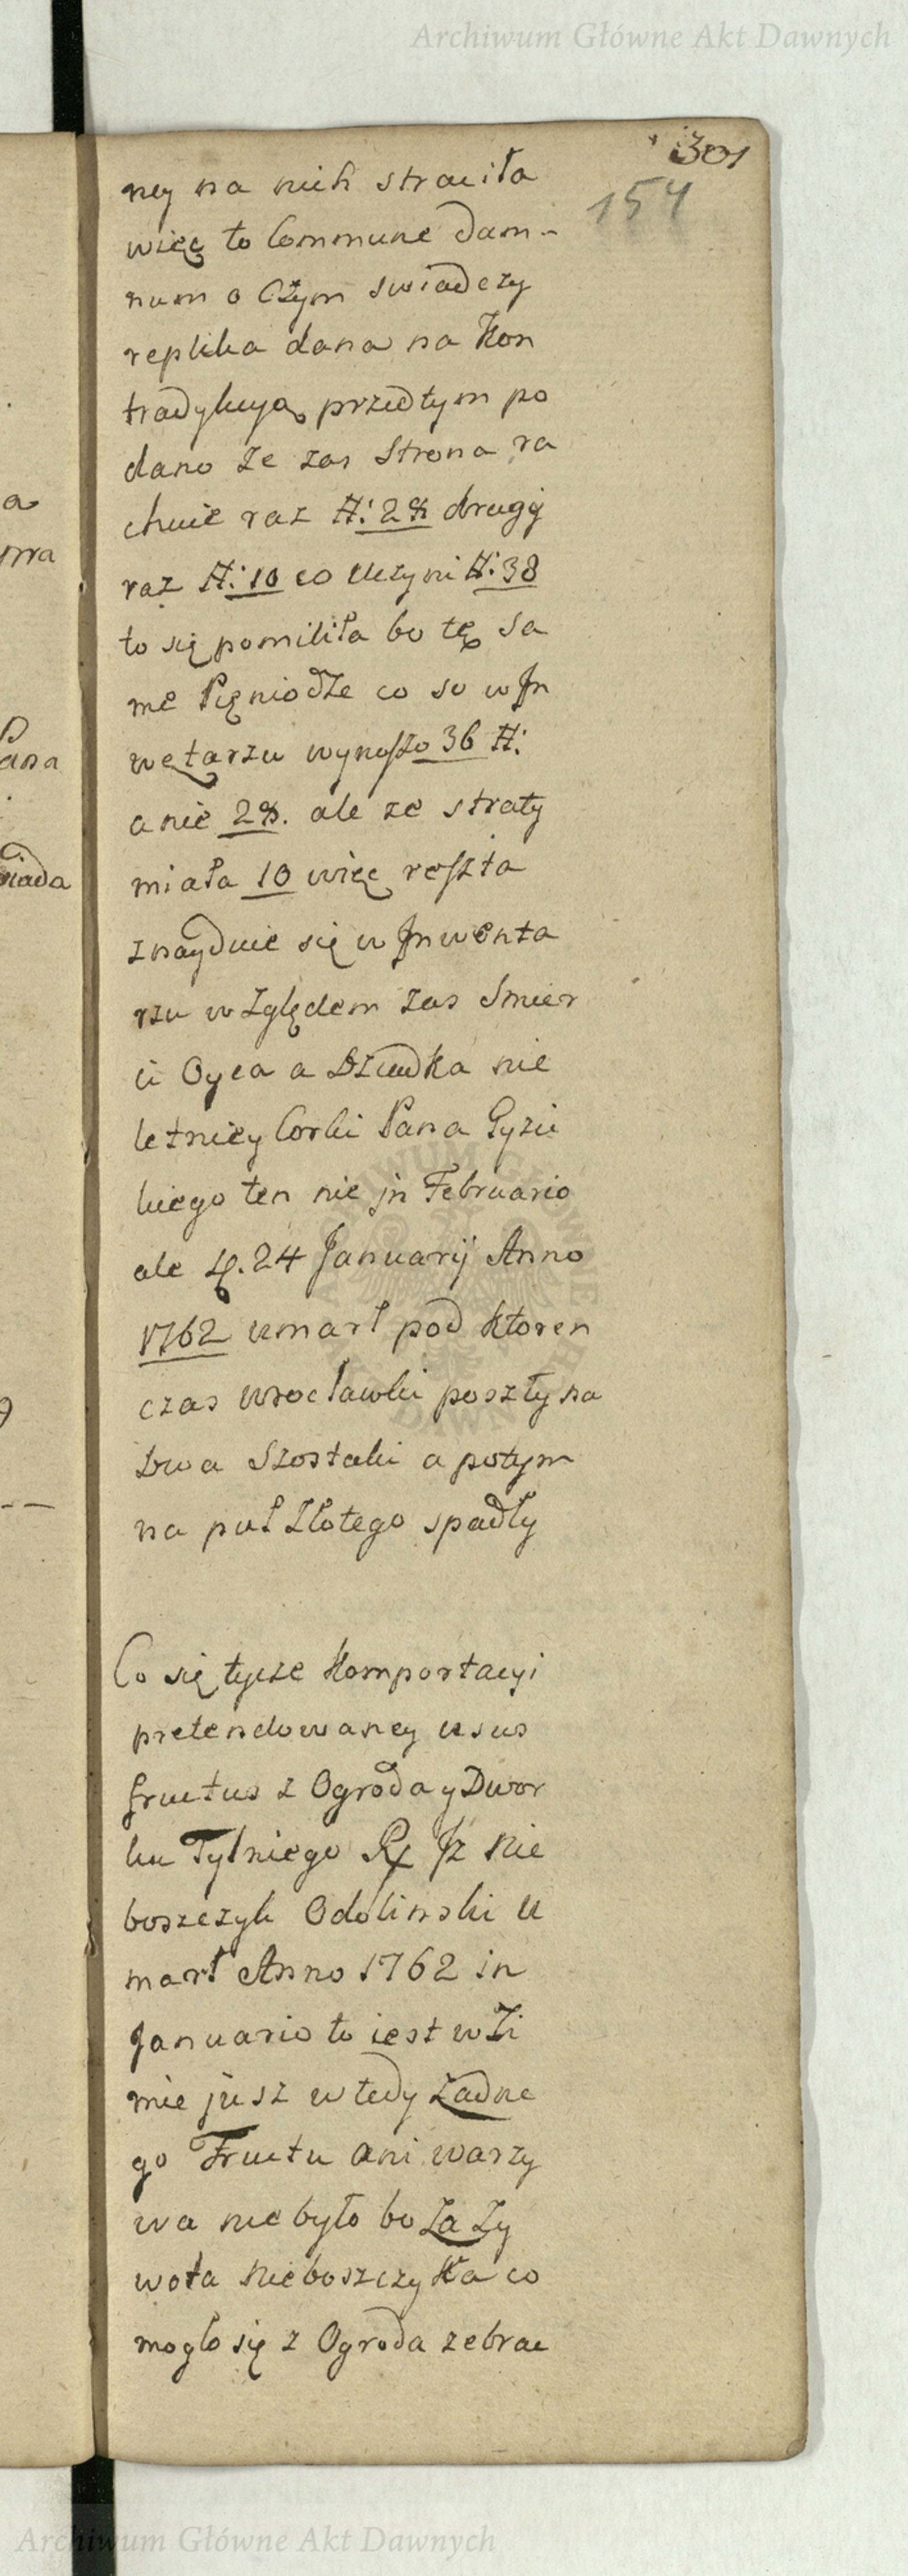 Archiwum Główne Akt Dawnych
301
154
ney na nich straciła
więc to Commune dam-
num o Czym swiadczy
replika dana na Kon
tradykcyą przedtym po
dano Ze zas Strona ra
chuie raz #: 28 drugi
raz #: 10 co Uczyni #: 38
to się pomiliła bo tę Sa
me Pięniodze co so w Jn
wętarzu wynoszo 36 #:
a nie 28. ale ze straty
miała 10 więc reszta
znayduie się w Jnwenta
rzu w Zględem Zas Smier
ci Oyca a Dziadka nie
letniey Corki Pana Gyzie
kiego ten nie jn Februario
ale 24 Januarij Anno
1762 umarł pod Ktoren
czas wrocławki poszły na
Dwa Szostaki a potym
na puł Złotego spadły
Co się tycze Komportacyi
pretendowaney usus
fructus z Ogroda y Dwor
ku Tylniego Rx Jz Nie
boszczyk Odolinski U
marł Anno 1762 in
Januario to iest w Zi
mie jusz wtedy Zadne
go Fructu ani warzy
wa nie było bo Za Zy
wota Nieboszczyka co
mogło się z Ogroda zebrac
a
nna
P
ana
niada
Archiwum Główne Akt Dawnych